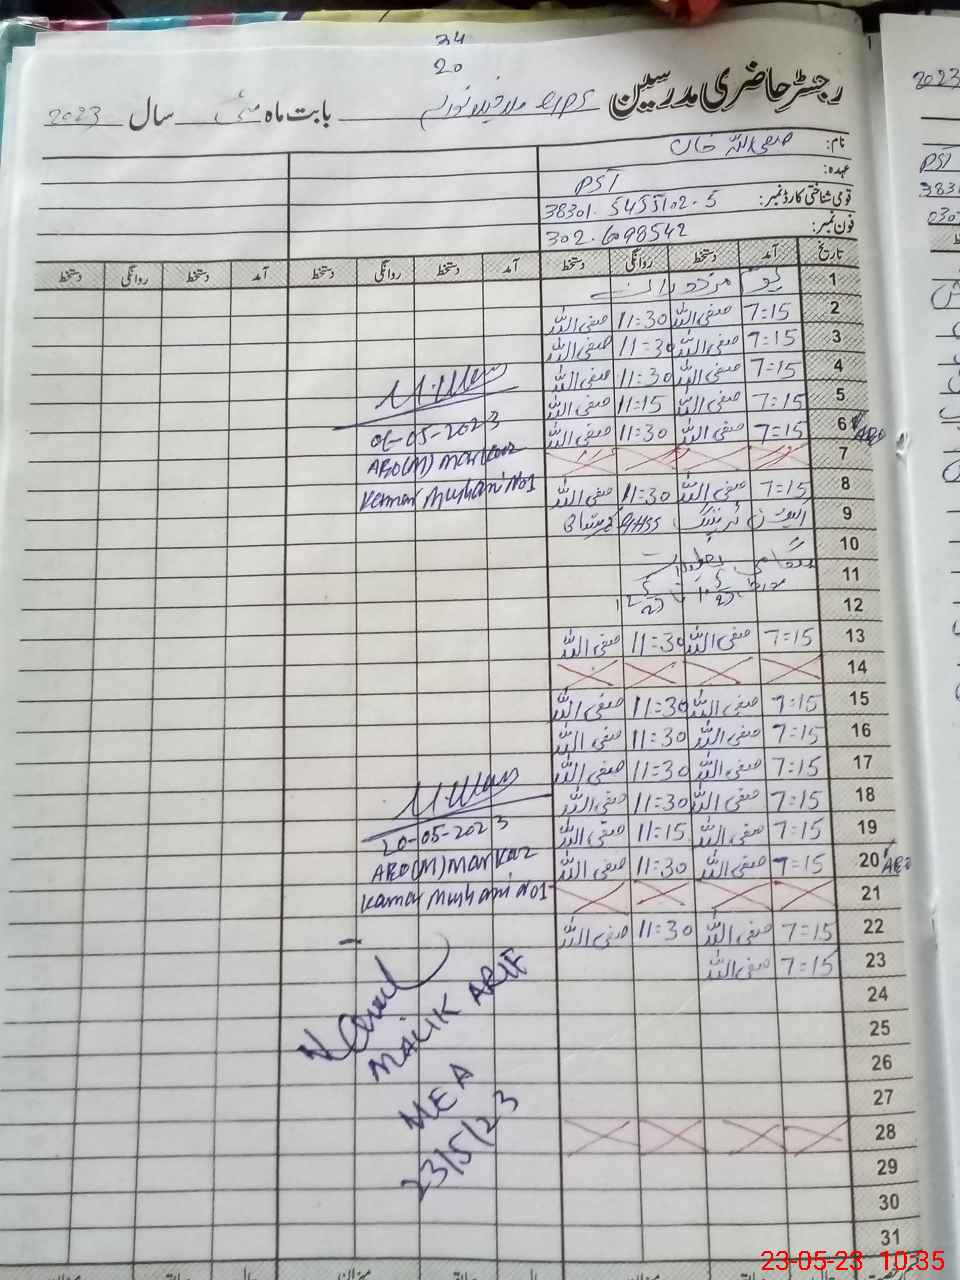 34
20
رجسٹر حاضری مدرسین GPS بابت ماہ مئی سال 2023
نام: صفی اللہ خان
عہدہ: PST
قومی شناختی کارڈ نمبر: 38301-5455102-5
فون نمبر: 302-6098542
تاریخ آمد دستخط روانگی دستخط آمد دستخط روانگی دستخط آمد دستخط روانگی دستخط
1 یوم مزدوراں
2 7=15 صفی اللہ 11=30 صفی اللہ
3 7=15 صفی اللہ 11=30 صفی اللہ
4 7=15 صفی اللہ 11=30 صفی اللہ
5 7=15 صفی اللہ 11=15 صفی اللہ
6 7=15 صفی اللہ 11=30 صفی اللہ
06-05-2023
AEO(M) Markaz
Kamar Mushani No1
7
8 7=15 صفی اللہ 11=30 صفی اللہ
9 ٹریننگ GHSS
10
11
12
13 7=15 صفی اللہ 11=30 صفی اللہ
14
15 7=15 صفی اللہ 11=30 صفی اللہ
16 7=15 صفی اللہ 11=30 صفی اللہ
17 7=15 صفی اللہ 11=30 صفی اللہ
18 7=15 صفی اللہ 11=30 صفی اللہ
19 7=15 صفی اللہ 11=15 صفی اللہ
20 AEO 7=15 صفی اللہ 11=30 صفی اللہ
20-05-2023
AEO(M) Markaz
Kamar Mushani No1
21
22 7=15 صفی اللہ 11=30 صفی اللہ
23 7=15 صفی اللہ
MALIK ARIF
MEA
23/5/23
24
25
26
27
28
29
30
31
2023
PST
23-05-23 10:35